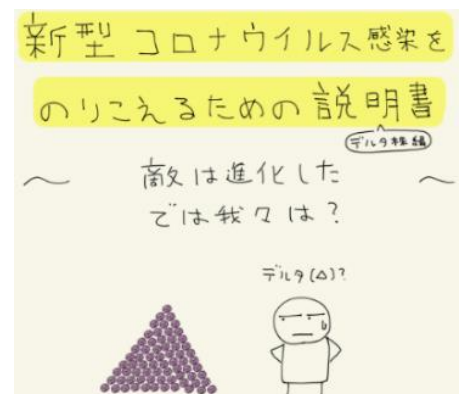 新型コロナウイルス感染を
のりこえるための説明書
デルタ株編
〜 敵は進化した 〜
では我々は?
デルタ(△)?